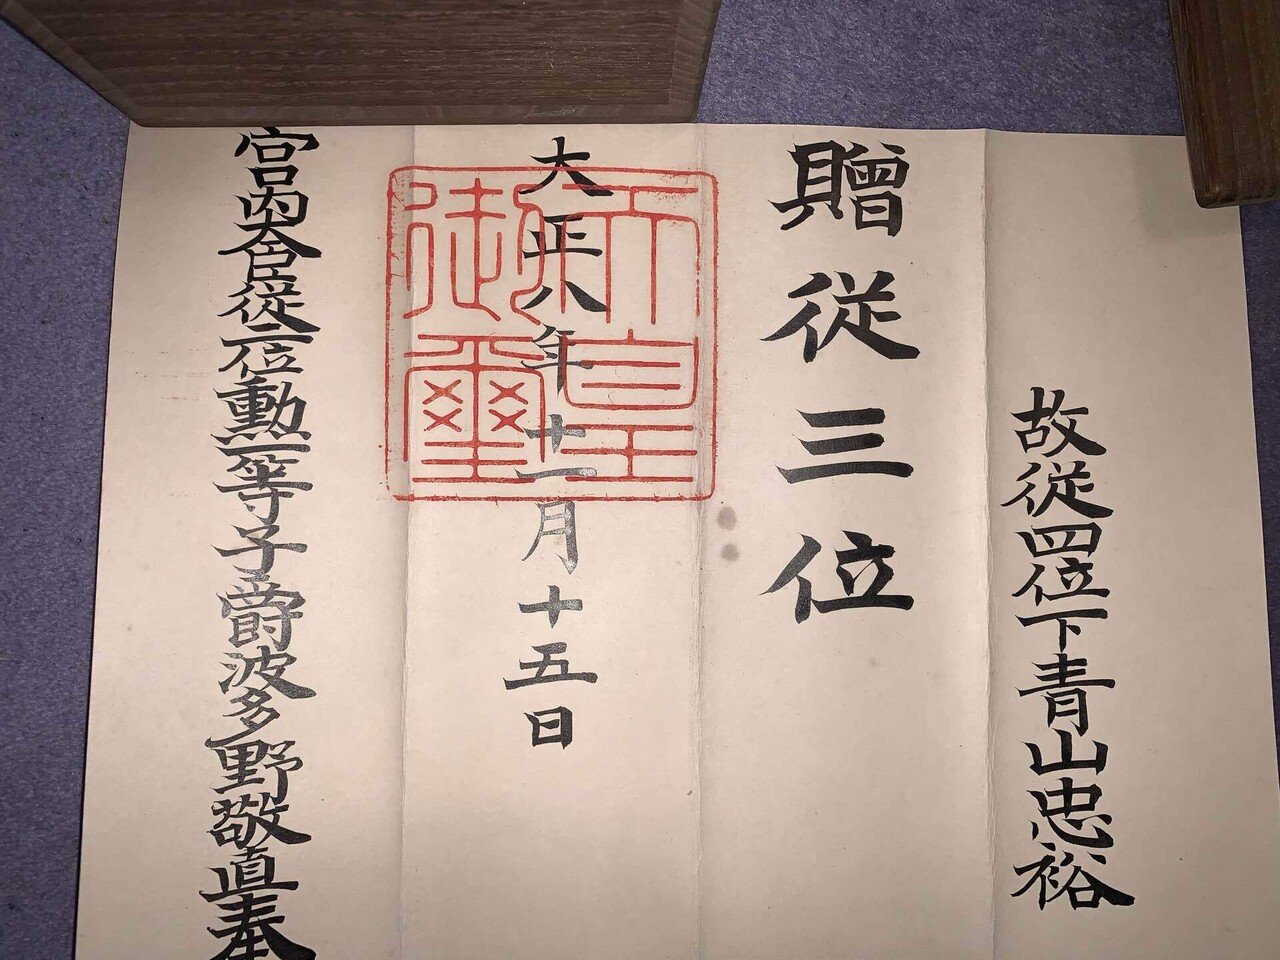 故従四位下青山忠裕
贈従三位
大正八年十一月十五日
天皇御璽
宮内大臣従二位勲一等子爵波多野敬直奉